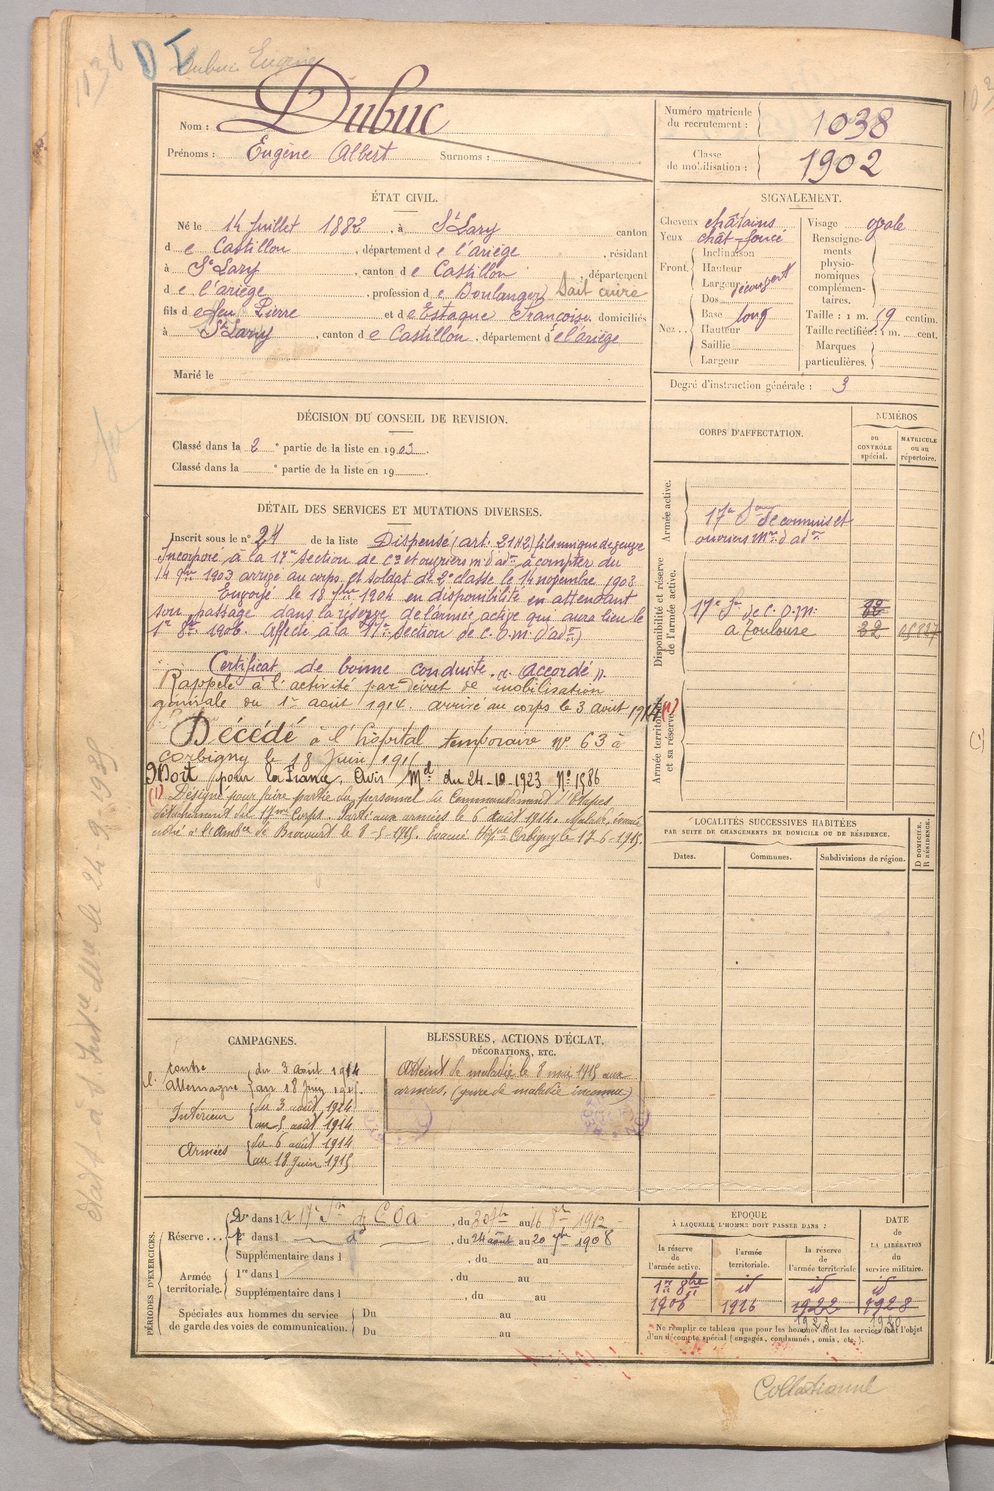 1038 D I Dubuc Eugène
Nom : Dubuc
Prénoms : Eugène Albert Surnoms :
Numéro matricule du recrutement : 1038
Classe de mobilisation : 1902
ÉTAT CIVIL.
Né le 14 Juillet 1882, à St Lary canton
de Castillon, département de l'ariège, résidant
à St Lary, canton de Castillon, département
de l'ariège, profession de Boulanger, Sait cuire
fils de feu Pierre et de Estaque Françoise, domiciliés
à St Lary, canton de Castillon, département de l'ariège
Marié le
SIGNALEMENT.
Cheveux châtains
Yeux chât foncé
Front. Inclinaison
Hauteur
Largeur découvert
Nez... Dos
Base long
Hauteur
Saillie
Largeur
Visage ovale
Renseignements physionomiques complémentaires.
Taille : 1 m. 59 centim.
Taille rectifiée : 1 m. cent.
Marques particulières.
Degré d'instruction générale : 3
DÉCISION DU CONSEIL DE REVISION.
Classé dans la 2e partie de la liste en 1903.
Classé dans la e partie de la liste en 19 .
DÉTAIL DES SERVICES ET MUTATIONS DIVERSES.
Inscrit sous le n° 24 de la liste Dispensé (art. 21 §2) fils unique de veuve
Incorporé à la 17e section de Cis et ouvriers m. d'adon à compter du
14 9bre 1903 arrivé au corps et soldat de 2e classe le 14 novembre 1903
Envoyé le 18 7bre 1904 en disponibilité en attendant
son passage dans la réserve de l'armée active qui aura lieu le
1er 8bre 1906. Affecté à la 17e Section de C. O. M. d'adon
Certificat de bonne conduite « Accordé ».
Rappelé à l'activité par décret de mobilisation
générale du 1er août 1914. arrivé au corps le 3 août 1914 (1)
Décédé à l'hôpital temporaire N° 63 à
Corbigny le 18 Juin 1915
Mort pour la France, Avis Mel du 24-10-1923 N° 1586
(1) Désigné pour faire partie du personnel du Commandement d'Etapes
détachement du 17me Corps. Parti aux armées le 6 août 1914. Malade,
entré à l'Ambce de le 8-5-1915. Evacué Hôpital Corbigny le 17-6-1915.
CORPS D'AFFECTATION.
NUMÉROS
au CONTRÔLE spécial.
MATRICULE ou au répertoire.
Armée active.
17e Son de commis et
ouvriers Mres d'adon
Disponibilité et réserve de l'armée active.
17e Son de C. O. M. 32
à Toulouse 32
Armée territoriale et sa réserve.
LOCALITÉS SUCCESSIVES HABITÉES
PAR SUITE DE CHANGEMENTS DE DOMICILE OU DE RÉSIDENCE.
Dates. Communes. Subdivisions de région. D DOMICILE. R RÉSIDENCE.
CAMPAGNES.
contre l'Allemagne du 3 août 1914
au 18 Juin 1915.
Intérieur du 3 août 1914
au 5 août 1914
Armées du 6 août 1914
au 18 Juin 1915
BLESSURES, ACTIONS D'ÉCLAT,
DÉCORATIONS, ETC.
Atteint de maladie le 8 mai 1915 aux
armées. (genre de maladie inconnu)
PÉRIODES D'EXERCICES.
Réserve.... 2e dans la 17e Son de COa, du au 16 1912
1re dans l do, du 24 août au 20 7bre 1908
Supplémentaire dans l , du au
Armée territoriale. 1re dans l , du au
Supplémentaire dans l , du au
Spéciales aux hommes du service de garde des voies de communication. Du au
Du au
ÉPOQUE
À LAQUELLE L'HOMME DOIT PASSER DANS :
la réserve de l'armée active. l'armée territoriale. la réserve de l'armée territoriale
DATE de LA LIBÉRATION du service militaire.
1er 8bre id id id
1906 1916 1922 1928
Ne remplir ce tableau que pour les hommes dont les services font l'objet
d'un décompte spécial (engagés, condamnés, omis, etc.).
Collationné